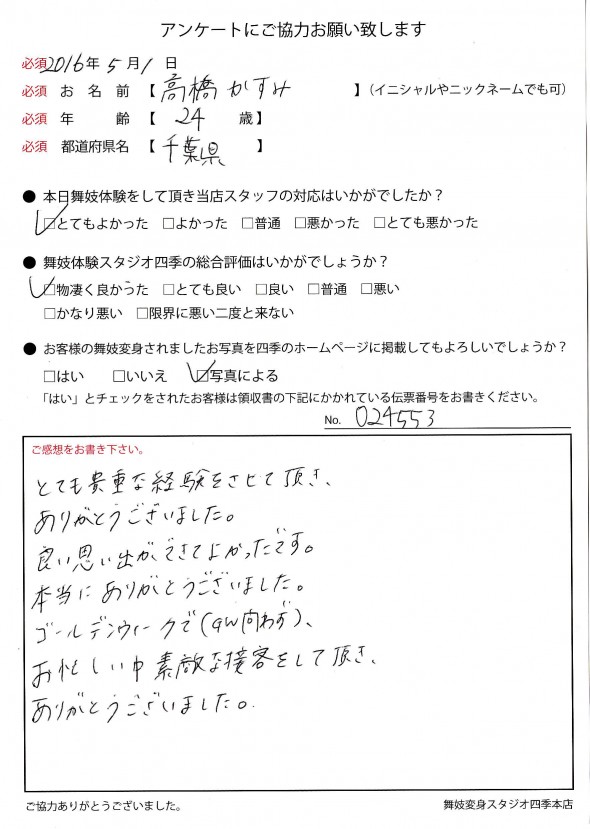 アンケートにご協力お願い致します
必須 2016年 5月 1日
必須 お 名 前 【 高橋かすみ 】（イニシャルやニックネームでも可）
必須 年 齢 【 24 歳】
必須 都道府県名 【 千葉県 】
● 本日舞妓体験をして頂き当店スタッフの対応はいかがでしたか？
☑とてもよかった □よかった □普通 □悪かった □とても悪かった
● 舞妓体験スタジオ四季の総合評価はいかがでしょうか？
☑物凄く良かった □とても良い □良い □普通 □悪い
□かなり悪い □限界に悪い二度と来ない
● お客様の舞妓変身されましたお写真を四季のホームページに掲載してもよろしいでしょうか？
□はい □いいえ ☑写真による
「はい」とチェックをされたお客様は領収書の下記にかかれている伝票番号をお書きください。
No. 024553
ご感想をお書き下さい。
とても貴重な経験をさせて頂き、
ありがとうございました。
良い思い出ができてよかったです。
本当にありがとうございました。
ゴールデンウィークで(GW問わず)、
お忙しい中素敵な接客をして頂き、
ありがとうございました。
ご協力ありがとうございました。
舞妓変身スタジオ四季本店